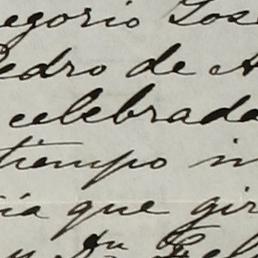 egorio Jose
Pedro de A
celebrada
tiempo in
ia que gir
su